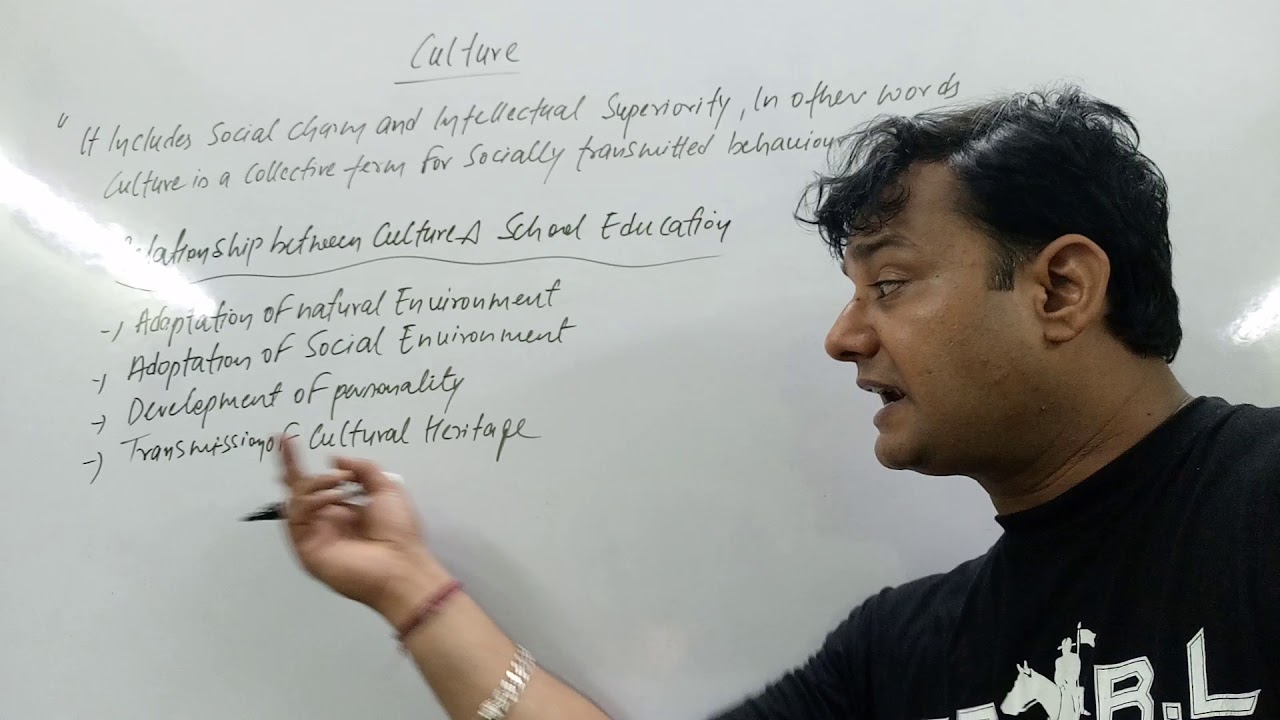 Culture
" It Includes Social charm and Intellectual Superiority, In other words
Culture is a Collective term for Socially transmitted behaviour
Relationship between Culture & School Education
-) Adaptation of natural Environment
-) Adoptation of Social Environment
-) Development of personality
-) Transmission of Cultural Heritage
B.L